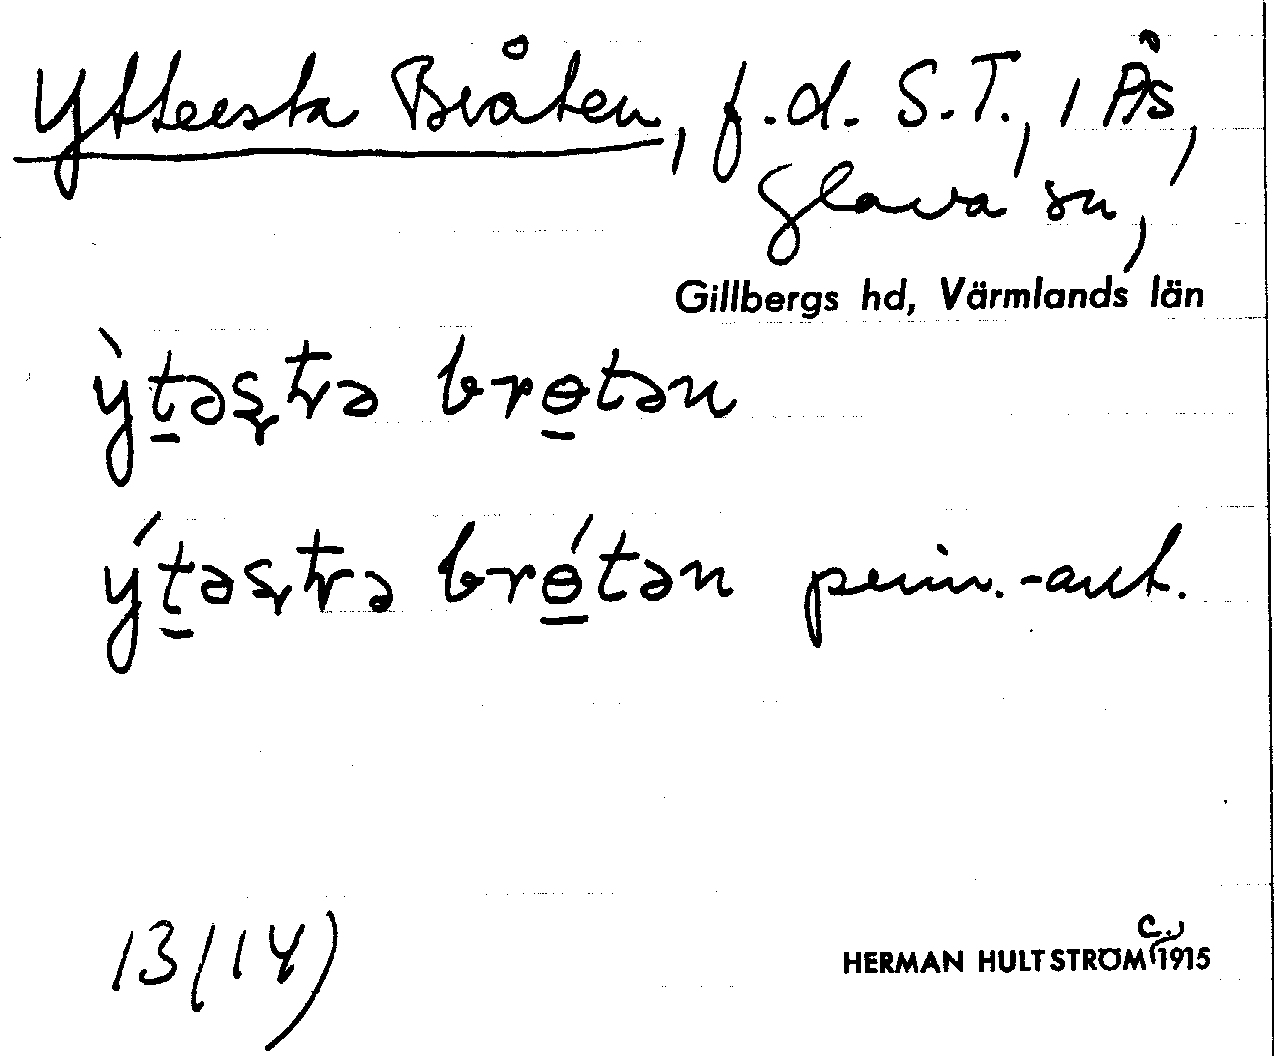 Yttersta Bråten, f.d. S.T., i Ås,
Glava sn,
Gillbergs hd, Värmlands län
ỳt̠əʂtrə brɵ̠tən
ýt̠əʂtrə brɵ̠́tən pers.-aut.
13(14)
HERMAN HULTSTRÖM c. 1915